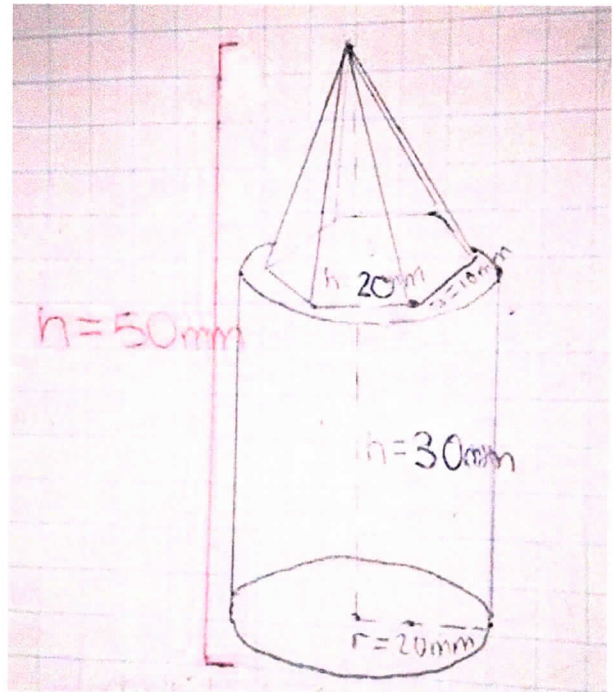 h 20 m
=10mm
h=50mm
h=30mm
r=20mm